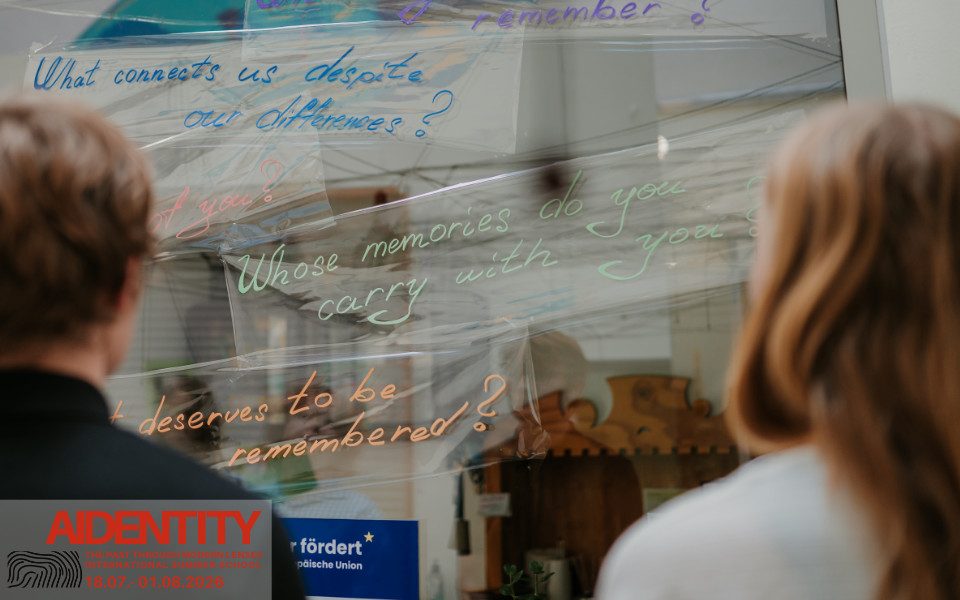 remember ?
What connects us despite
our differences ?
of you ?
Whose memories do you
carry with you ?
deserves to be
remembered ?
fördert
päische Union
AIDENTITY
THE PAST THROUGH MODERN LENSES
INTERNATIONAL SUMMER SCHOOL
18.07.-01.08.2026